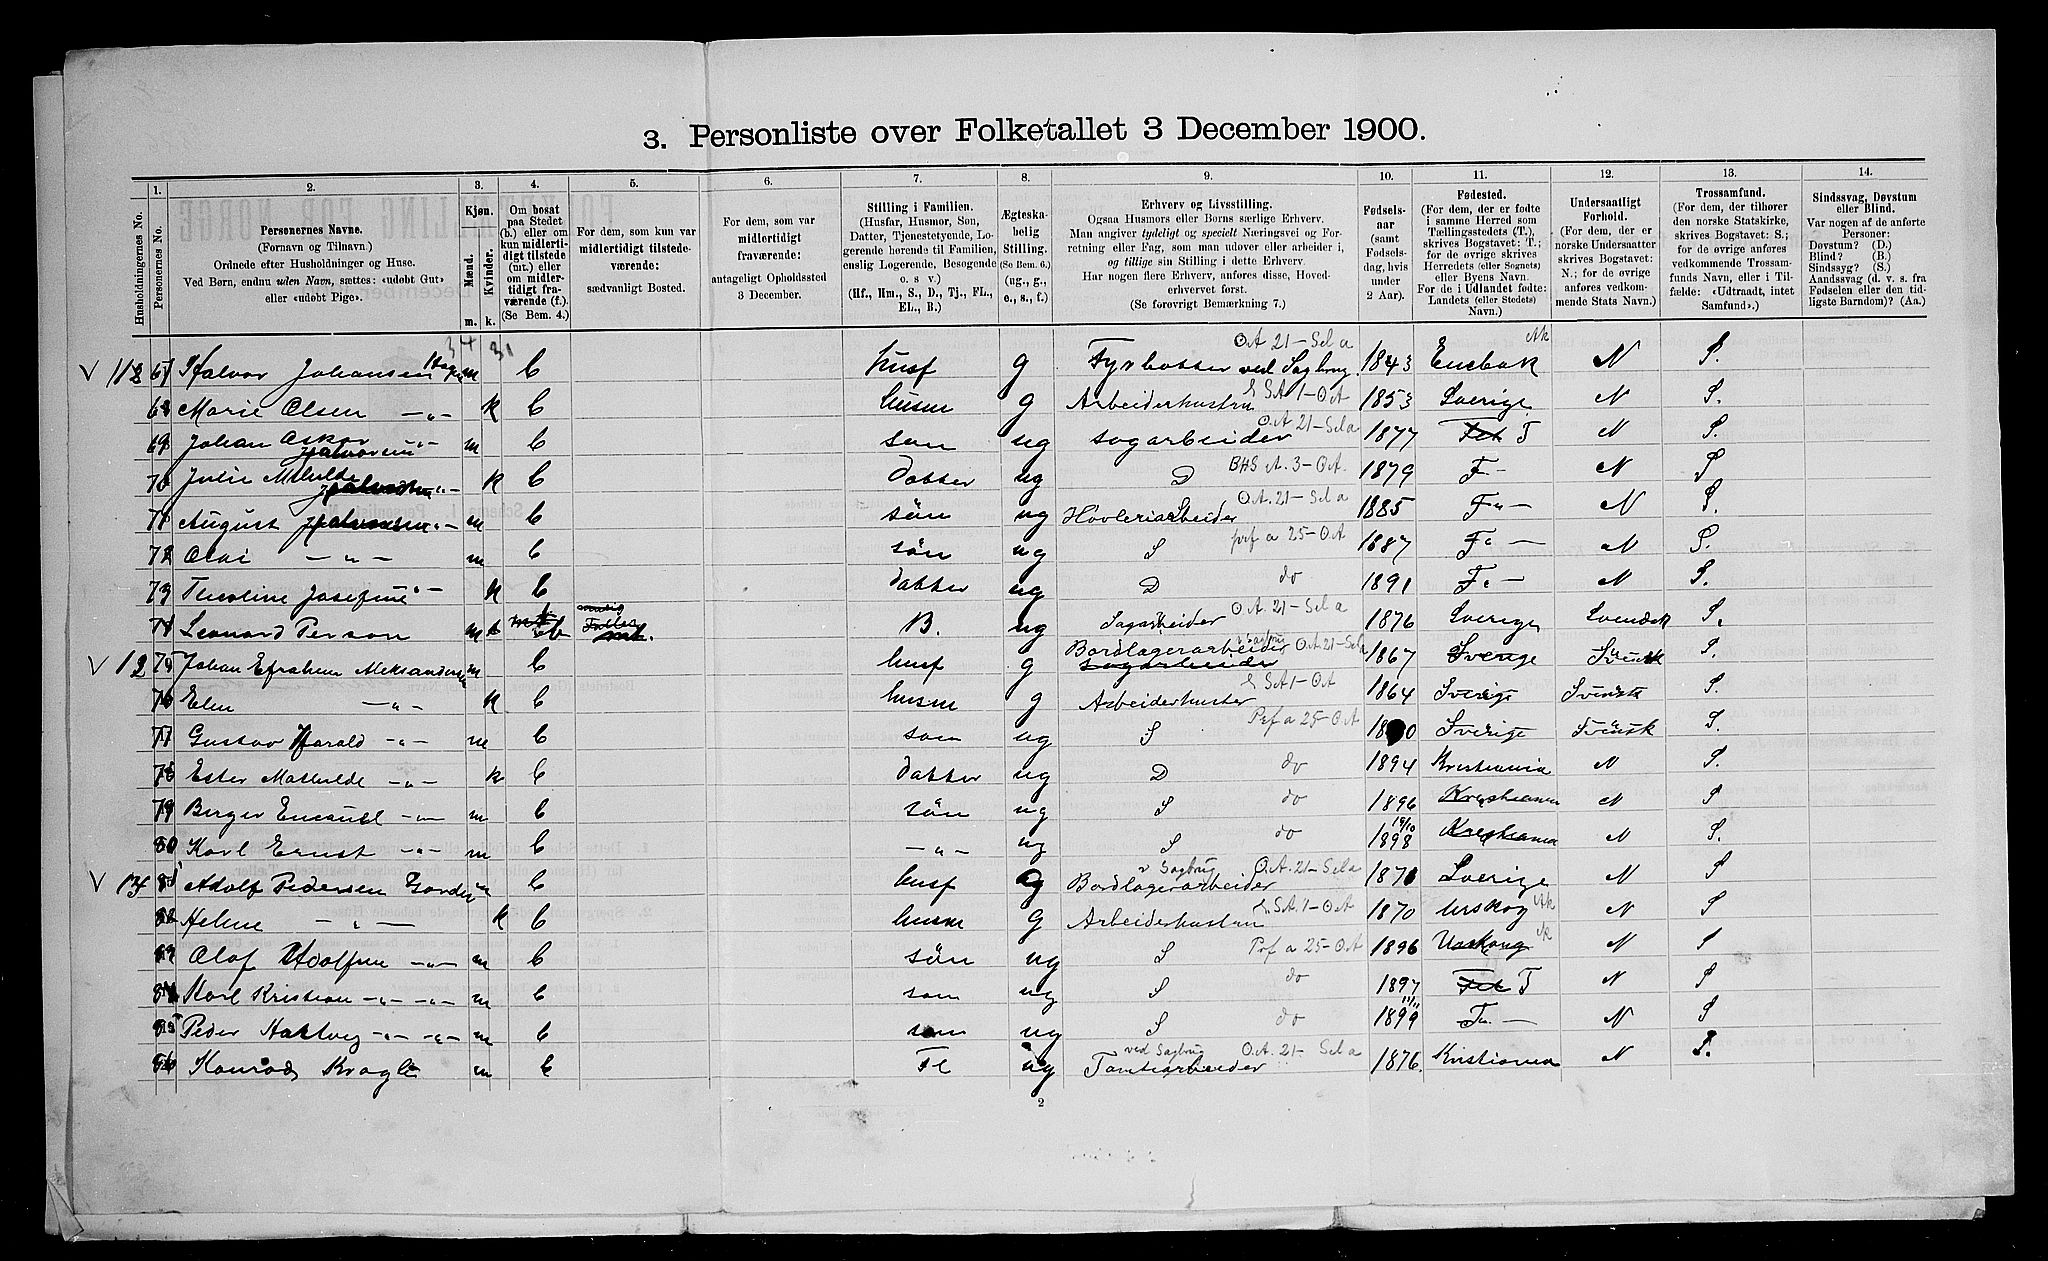 3. Personliste over Folketallet 3 December 1900.
Husholdningernes No.
1. Personernes No.
2. Personernes Navne.
(Fornavn og Tilnavn.)
Ordnede efter Husholdninger og Huse.
Ved Børn, endnu uden Navn, sættes: «udøbt Gut» eller «udøbt Pige».
3. Kjøn.
Mænd. m.
Kvinder. k.
4. Om bosat paa Stedet (b.) eller om kun midlertidigt tilstede (mt.) eller om midlertidigt fraværende (f.). (Se Bem. 4.)
5. For dem, som kun var midlertidigt tilstedeværende:
sædvanligt Bosted.
6. For dem, som var midlertidigt fraværende:
antageligt Opholdssted 3 December.
7. Stilling i Familien.
(Husfar, Husmor, Søn, Datter, Tjenestetyende, Logerende hørende til Familien, enslig Logerende, Besøgende o. s. v.)
(Hf., Hm., S., D., Tj., FL., EL., B.)
8. Ægteskabelig Stilling.
(Se Bem. 6.)
(ug., g., e., s., f.)
9. Erhverv og Livsstilling.
Ogsaa Husmors eller Børns særlige Erhverv. Man angiver tydeligt og specielt Næringsvei og Forretning eller Fag, som man udover eller arbeider i, og tillige sin Stilling i dette Erhverv. Har nogen flere Erhverv, anføres disse, Hovederhvervet først.
(Se forøvrigt Bemærkning 7.)
10. Fødselsaar (samt Fødselsdag, hvis under 2 Aar).
11. Fødested.
(For dem, der er fødte i samme Herred som Tællingsstedets (T.), skrives Bogstavet: T; for de øvrige skrives Herredets (eller Sognets) eller Byens Navn. For de i Udlandet fødte: Landets (eller Stedets) Navn.)
12. Undersaatligt Forhold.
(For dem, der er norske Undersaatter skrives Bogstavet: N.; for de øvrige anføres vedkommende Stats Navn.)
13. Trossamfund.
(For dem, der tilhører den norske Statskirke, skrives Bogstavet: S.; for de øvrige anføres vedkommende Trossamfunds Navn, eller i Tilfælde: «Udtraadt, intet Samfund».)
14. Sindssvag, Døvstum eller Blind.
Var nogen af de anførte Personer:
Døvstum? (D.)
Blind? (B.)
Sindssyg? (S.)
Aandssvag (d. v. s. fra Fødselen eller den tidligste Barndom)? (Aa.)
34 31
Halvor Johansen m b husf g Fyrbøtter ved Sagbrug O.A. 21 - Sel a 1843 Enebak Ak N S.
68 Marie Olsen —"— k b husm g Arbeiderhustru E S.A. 1 - O.A 1853 Sverige N S.
69 Johan Oskar Halvorsen m b søn ug sagarbeider O.A 21 - Sel a 1877 Fet T N S.
70 Julie Mathilde k b datter ug D BHS A. 3 - O.A. 1879 F— N S
71 August Halvorsen m b søn ug Høvleriarbeider O.A. 21 - Sel a 1885 F"— N S.
72 Olai —"— m b søn ug S prf a 25 - O.A 1887 F"— N S.
73 Theoline Josefine k b datter ug D do 1891 F"— N S.
74 Leonard Person m b B. ug Sagarbeider O.A. 21 - Sel a 1876 Sverige Svendsk S.
V 12 75 Johan Efrahim Aleksandersen m b husf g Bordlagerarbeider v Sagbrug O.A. 21 - Sel a sagarbeider 1867 Sverige Svensk S.
76 Elen —"— k b husm g Arbeiderhuster E S.A 1 - O.A 1864 Sverige Svensk S.
77 Gustav Harald —"— m b søn ug S Prf a 25 - O.A Sverige Svensk S.
78 Ester Mathilde —"— k b datter ug D do 1894 Kristiania N S.
79 Birger Emanuel —"— m b søn ug S do 1896 Kristiania N S
80 Karl Ernst —"— m b —"— ug S do 18/10 1898 Kristiania N S.
V 81 Adolf Pedersen m b husf g Bordlagerarbeider v Sagbrug O.A. 21 - Sel a Sverige N S
82 Helene —"— k b husm g Arbeiderhustru E S.A. 1 - O.A 1870 Urskog Ak N S
83 Olaf Adolfsen —"— m b søn ug S Prf a 25 - O.A 1896 Urskoug Ak N S
84 Karl Kristian —"—"— m b søn ug S do 1897 Fet T N S
85 Peder Hartvig —"—"— m b søn ug S do 11/11 1899 F"— N S
86 Konrad Kragh m b Fl ug Tomtearbeider ved Sagbrug O.A. 21 - Sel a 1876. Kristiania N S.
2